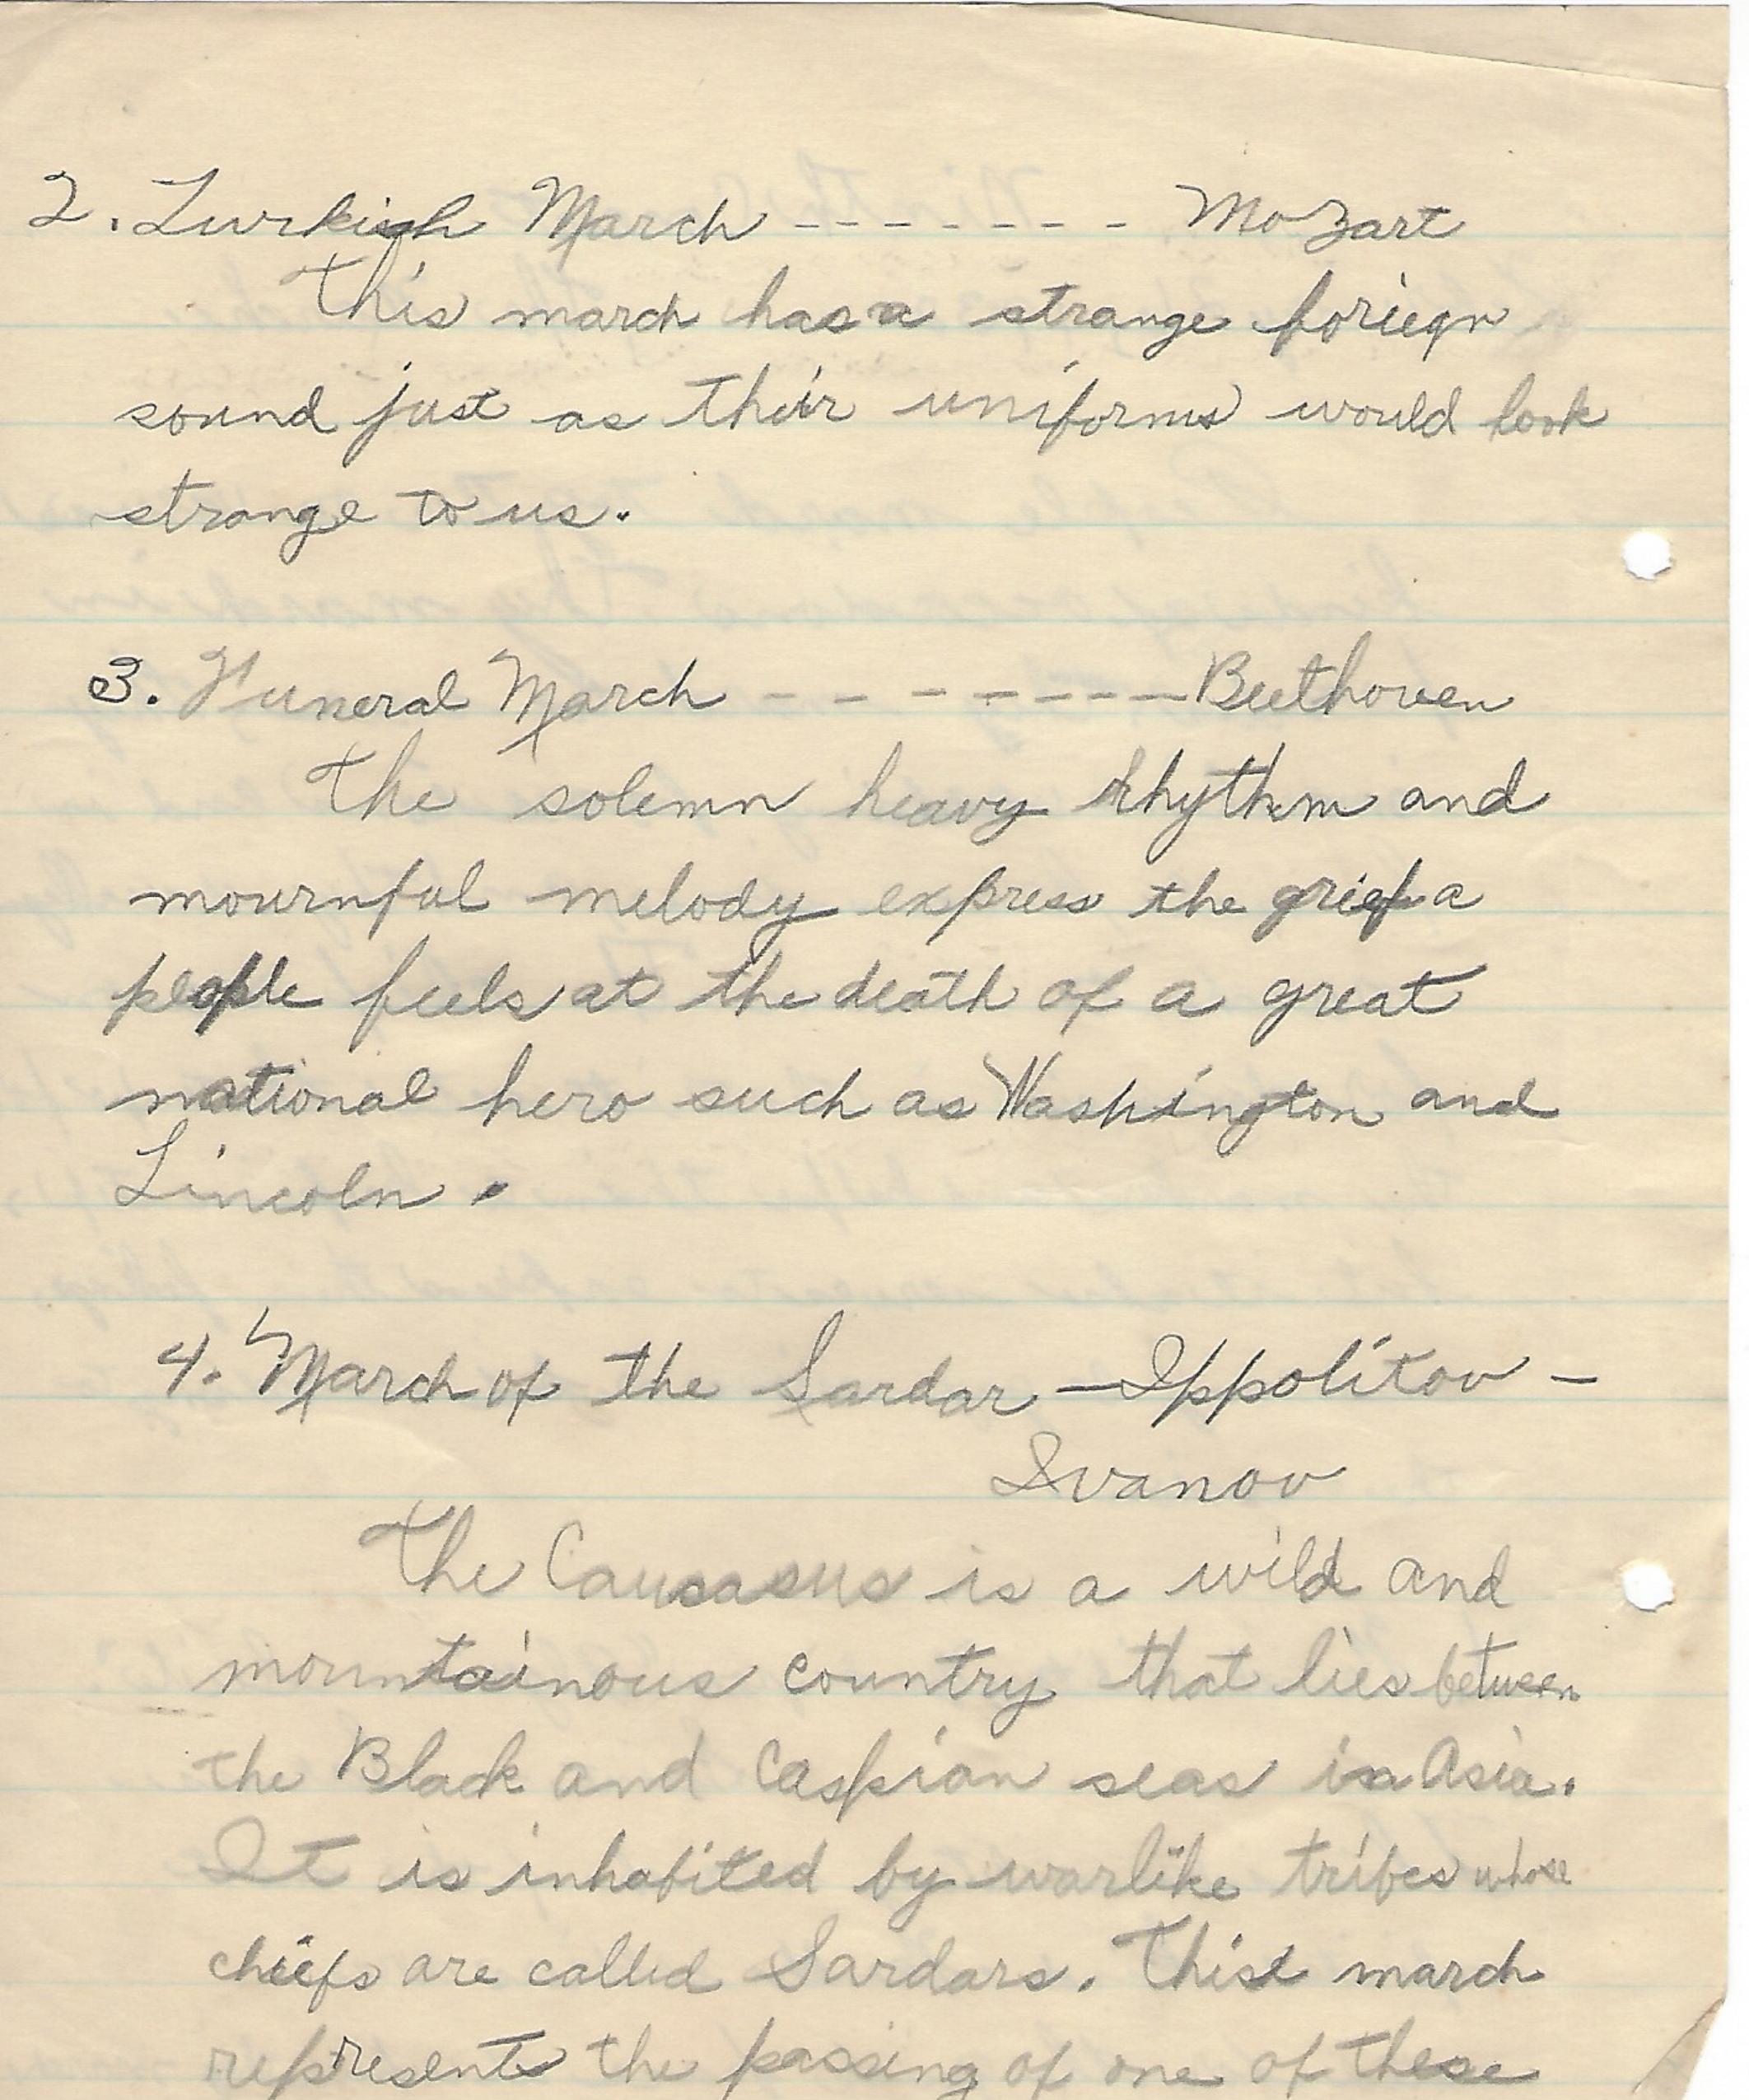 2. Turkish March - - - - - - - Mozart
This march has a strange foriegn
sound just as their uniforms would look
strange to us.
3. Funeral March - - - - - - - - Beethoven
The solemn heavy rhythm and
mournful melody express the grief a
people feels at the death of a great
national hero such as Washington and
Lincoln.
4. March of the Sardar - Ippolitov -
Ivanov
The Causasus is a wild and
mountainous country that lies between
the Black and Caspian seas in Asia.
It is inhabited by warlike tribes whose
chiefs are called Sardars. This march
represents the passing of one of these